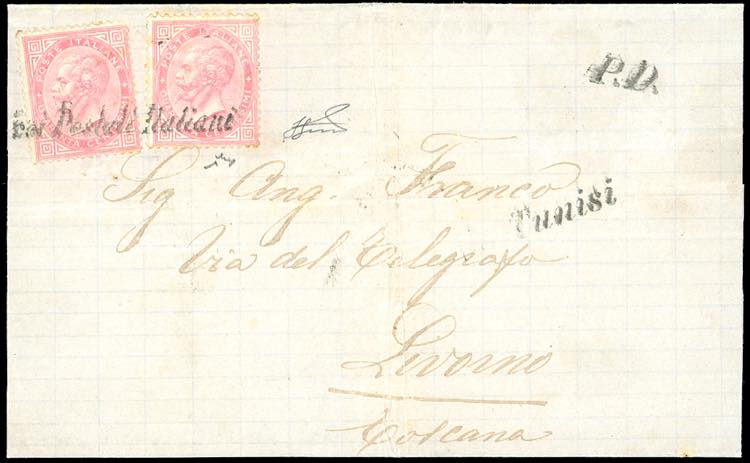 POSTE ITALIANE
POSTE ITALIANE
P.D.
Postali Italiani
Sig Ang. Franco
Tunisi
Via del Telegrafo
Livorno
Toscana